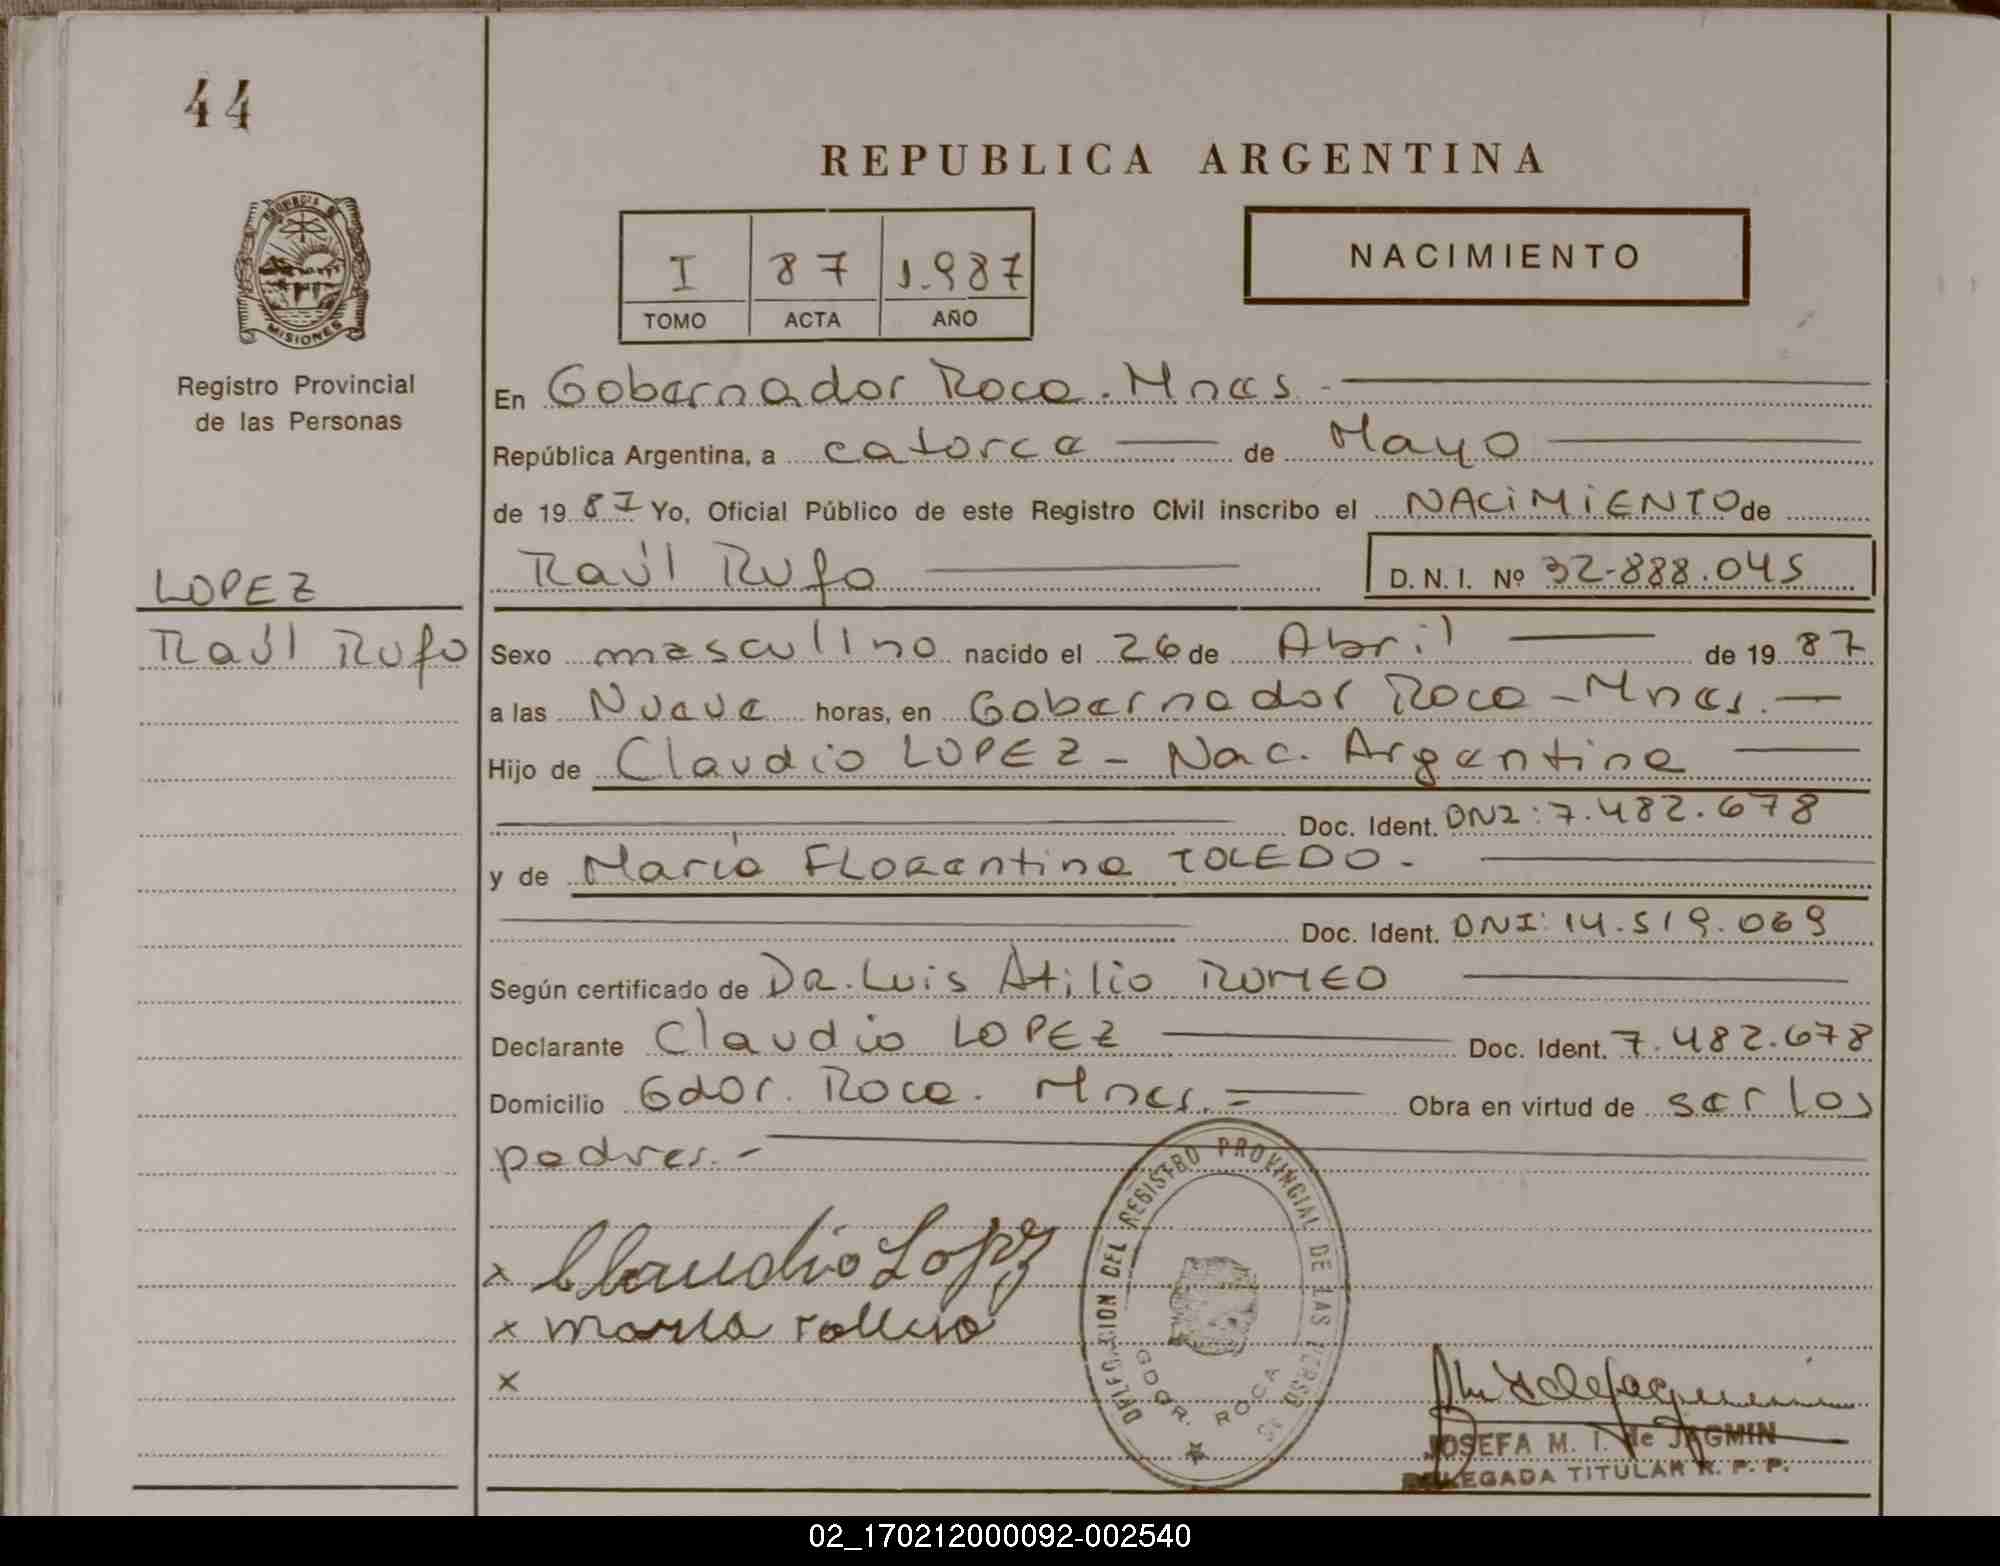 44
PROVINCIA DE
MISIONES
Registro Provincial
de las Personas
LOPEZ
Raúl Rufo
REPUBLICA ARGENTINA
I 87 1.987
TOMO ACTA AÑO
NACIMIENTO
En Gobernador Roca. Mnes.-
República Argentina, a catorce de Mayo
de 1987 Yo, Oficial Público de este Registro Civil inscribo el NACIMIENTO de
Raúl Rufo D.N.I. Nº 32-888.045
Sexo masculino nacido el 26 de Abril de 19 87
a las Nueve horas, en Gobernador Roca - Mnes. -
Hijo de Claudio LOPEZ - Nac. Argentina
Doc. Ident. DNI: 7.482.678
y de María FLorentina TOLEDO.-
Doc. Ident. DNI: 14.519.069
Según certificado de DR. Luis Atilio ROMEO
Declarante Claudio LOPEZ Doc. Ident. 7.482.678
Domicilio Gdor. Roca. Mnes. = Obra en virtud de ser los
padres.-
x Claudio Lopez
x maria
x
DELEGACION DEL REGISTRO PROVINCIAL DE LAS PERSONAS
GDOR. ROCA
JOSEFA M. I. de JAGMIN
DELEGADA TITULAR R. P. P.
02_170212000092-002540